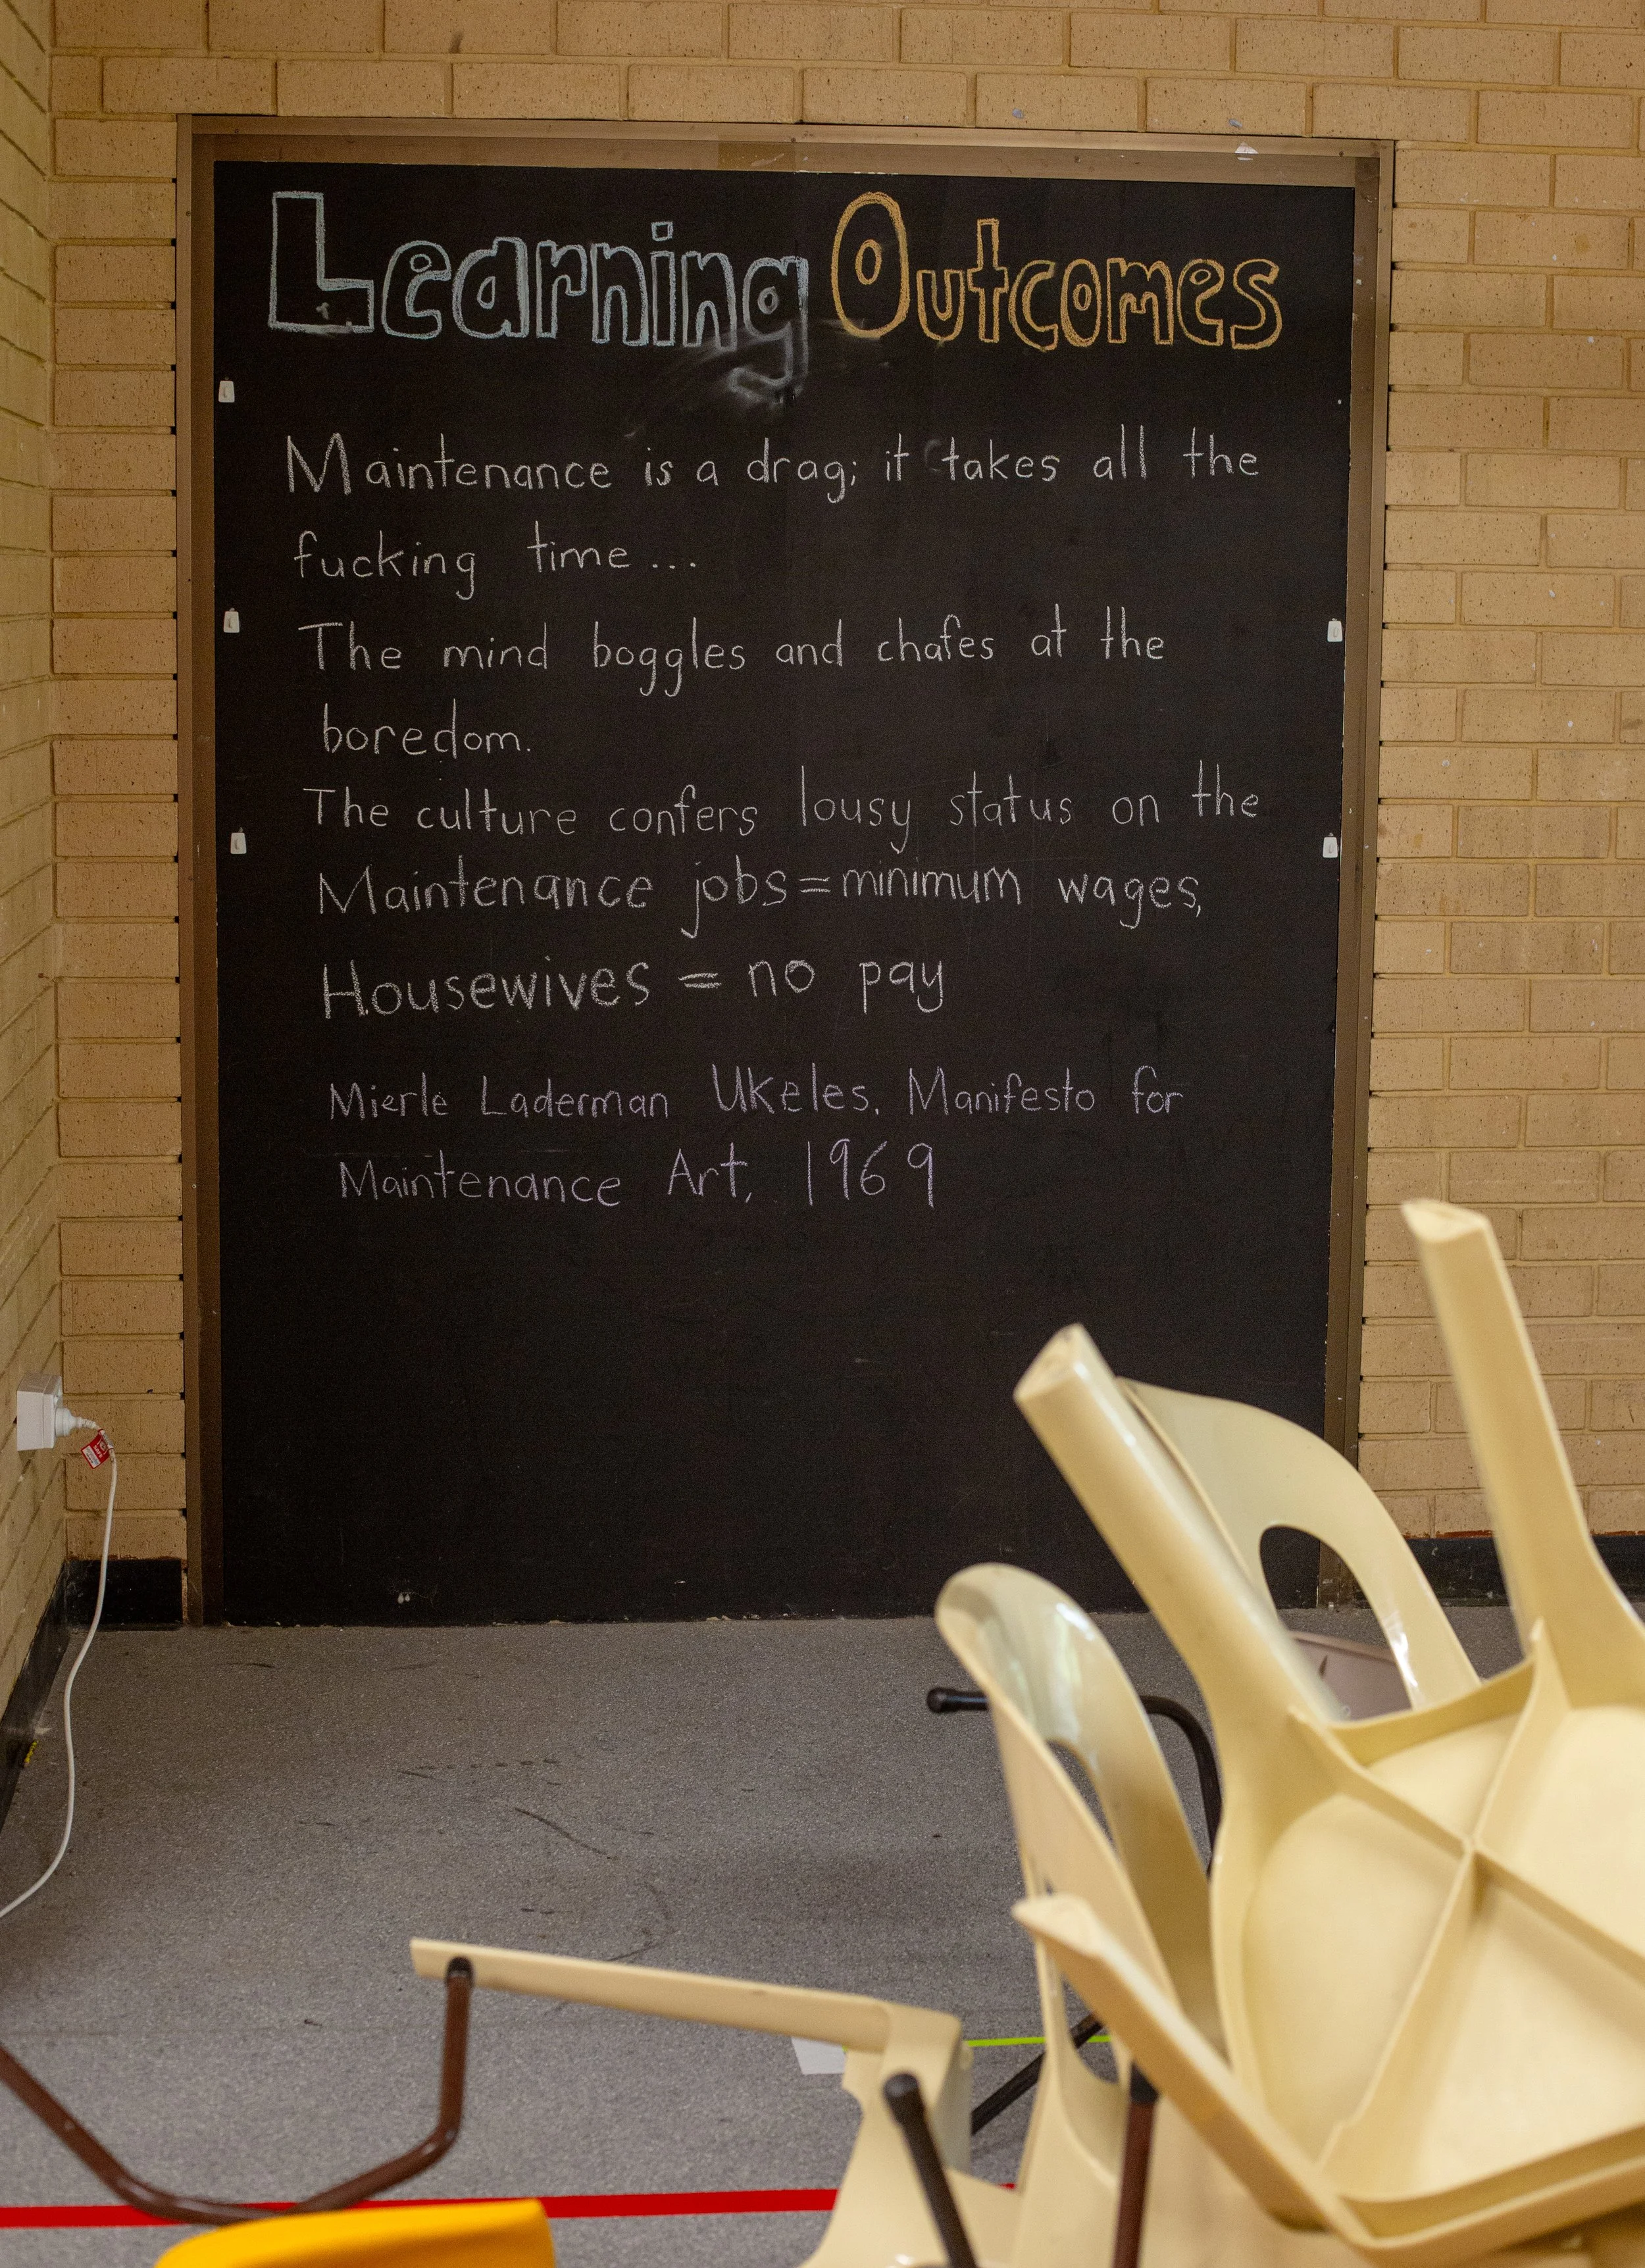 Learning Outcomes
Maintenance is a drag; it takes all the
fucking time...
The mind boggles and chafes at the
boredom.
The culture confers lousy status on the
Maintenance jobs=minimum wages,
Housewives = no pay
Mierle Laderman Ukeles. Manifesto for
Maintenance Art, 1969